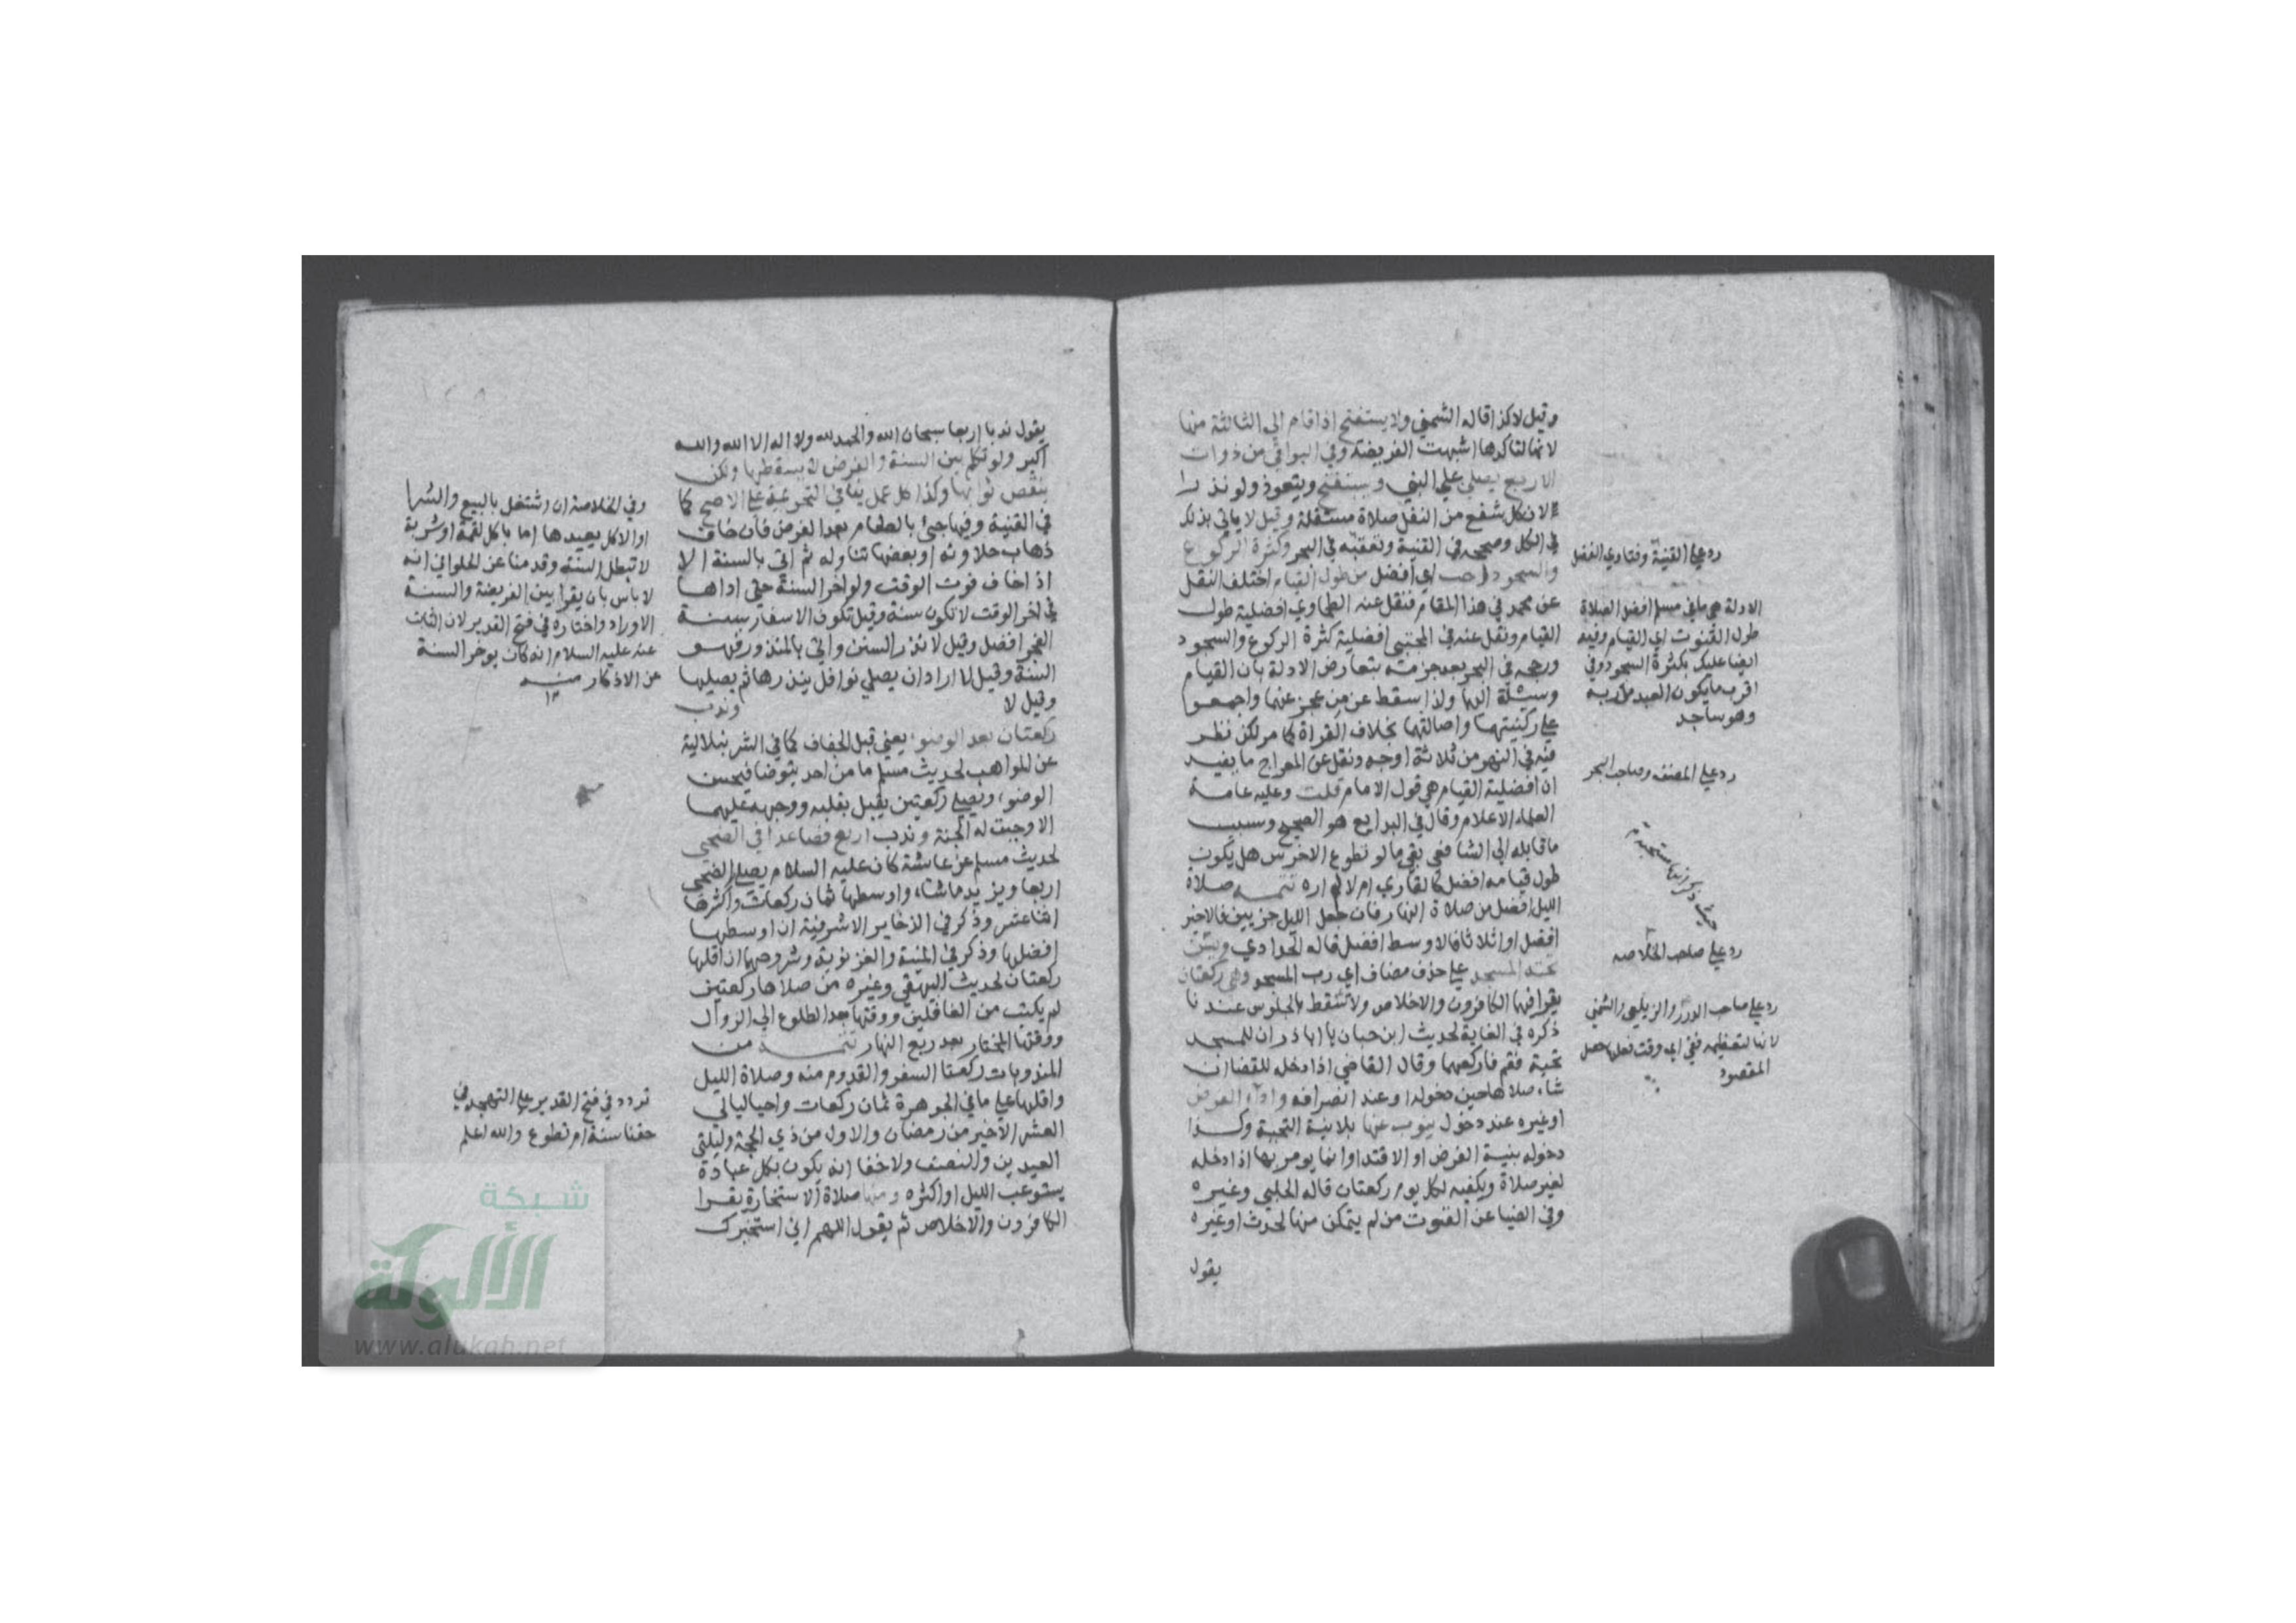 وقيل لا كذا قاله الشمني ولا يستفتح اذا قام الى الثالثة منها
لانها لتاكدها اشبهت الفريضة وفي البواقي من ذوات
الاربع يصلي على النبي ويستفتح ويتعوذ ولو نذرا
لان كل شفع من النفل صلاة مستقلة وقيل لا ياتي بذلك
في الكل وصححه في القنية وتعقبه في البحر وكثرة الركوع
والسجود احب اي افضل من طول القيام اختلف النقل
عن محمد في هذا المقام فنقل عنه الطحاوي افضلية طول
القيام ونقل عنه في المجتبى افضلية كثرة الركوع والسجود
ورجحه في البحر بعد جزمه بتعارض الادلة بان القيام
وسيلة اليها ولذا سقط عن من عجز عنها واجمعوا
على ركنيتهما واصالتهما بخلاف القراة كما مر لكن نظر
فيه في النهر من ثلاثة اوجه ونقل عن المعراج ما يفيد
ان افضلية القيام هي قول الامام قلت وعليه عامة
العلماء الاعلام وقال في البدايع هو الصحيح وسبب
ما قابله الى الشافعي بقي ما لو تطوع الاخرس هل يكون
طول قيامه افضل كالقاري ام لا لم اره تتمه صلاة
الليل افضل من صلاة النهار فان جعل الليل جزيين فالاخير
افضل او اثلاثا فالاوسط افضل قاله الحدادي ويسن
تحية المسجد على حذف مضاف اي رب المسجد وهي ركعتان
يقرا فيها الكافرون والاخلاص ولا تسقط بالجلوس عندنا
ذكره في الغاية لحديث ابن حبان يا ابا ذر ان للمسجد
تحية فقم فاركعهما وقال القاضي اذا دخله للقضا ان
شاء صلاها حين دخوله او عند انصرافه واداء الفرض
او غيره عند دخول ينوب عنها بلا نية التحية وكذا
دخوله بنية الفرض او الاقتدا وانما يومر بها اذا دخله
لغير صلاة ويكفيه لكل يوم ركعتان قاله الحلبي وغيره
وفي الضيا عن القوت من لم يتمكن منها لحدث او غيره
يقول
رد على القنية وفتاوي الفضل
الادلة هي ما في مسلم افضل الصلاة
طول القنوت اي القيام وفيه
ايضا عليك بكثرة السجود وفي
اقرب ما يكون العبد من ربه
وهو ساجد
رد على المصنف وصاحب البحر
حيث ذكر انها مستحبة
رد على صاحب الخلاصه
رد على صاحب الدرر والزيلعي والشمني
لانها لتعظيمه ففي اي وقت فعلها حصل
المقصود
يقول ندبا اربعا سبحان الله والحمد لله ولا اله الا الله والله
اكبر ولو تكلم بين السنة والفرض لا يسقطها ولكن
ينقص ثوابها وكذا كل عمل ينافي التحريمة على الاصح كما
في القنية وفيها جئ بالطعام بعد الفرض فان خاف
ذهاب حلاوته او بعضها تناوله ثم اتى بالسنة الا
اذا خاف فوت الوقت ولو اخر السنة حتى اداها
في اخر الوقت لا تكون سنة وقيل تكون الاسفار بسنة
الفجر افضل وقيل لا نذر السنن واتى بالمنذور فهو
السنة وقيل لا اراد ان يصلي نوافل ينذرها ثم يصليها
وقيل لا وندب
ركعتان بعد الوضوء يعني قبل الجفاف كما في الشرنبلالية
عن المواهب لحديث مسلم ما من احد يتوضا فيحسن
الوضوء ويصلي ركعتين يقبل بقلبه ووجهه عليهما
الا وجبت له الجنة وندب اربع فصاعدا في الضحى
لحديث مسلم عن عائشة كان عليه السلام يصلي الضحى
اربعا ويزيد ما شاء واوسطها ثمان ركعات واكثرها
اثنا عشر وذكر في الذخاير الاشرفية ان اوسطها
افضلها وذكر في المنية والغزنوية وشروحهما ان اقلها
ركعتان لحديث البيهقي وغيره من صلاها ركعتين
لم يكتب من الغافلين ووقتها بعد الطلوع الى الزوال
ووقتها المختار بعد ربع النهار تتمة من
المندوبات ركعتا السفر والقدوم منه وصلاة الليل
واقلها على ما في الجوهرة ثمان ركعات واحيا ليالي
العشر الاخير من رمضان والاول من ذي الحجة وليلتي
العيدين والنصف ولا خفا انه يكون بكل عبادة
يستوعب الليل او اكثره ومنها صلاة الاستخارة يقرا
الكافرون والاخلاص ثم يقول اللهم اني استخيرك
وفي الخلاصة ان اشتغل بالبيع والشرا
او الاكل يعيدها اما باكل لقمة او شربة
لا تبطل السنة وقدمنا عن الحلواني انه
لا باس بان يقرا بين الفريضة والسنة
الاوراد واختاره في فتح القدير لان الثابت
عنه عليه السلام انه كان يوخر السنة
عن الاذكار منه
١٢
تردد في فتح القدير على التهجد في
حقنا سنة ام تطوع والله اعلم
شبكة
الألوكة
www.alukah.net